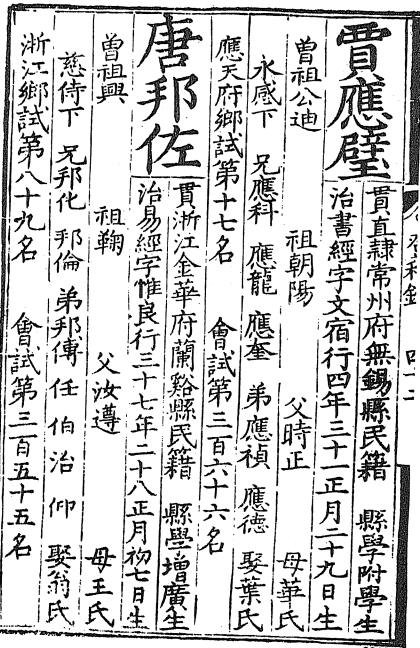 賈應璧
貫直隸常州府無錫縣民籍 縣學附學生
治書經字文宿行四年三十一正月二十九日生
曾祖公迪 祖朝陽 父時正 母華氏
永感下 兄應科 應龍 應奎 弟應禎 應德 娶葉氏
應天府鄉試第十七名 會試第三百六十六名
唐邦佐
貫浙江金華府蘭谿縣民籍 縣學增廣生
治易經字惟良行三十七年二十八正月初七日生
曾祖興 祖鞠 父汝遵 母王氏
慈侍下 兄邦化 邦倫 弟邦傳 任 伯 治 仰 娶翁氏
浙江鄉試第八十九名 會試第三百五十五名